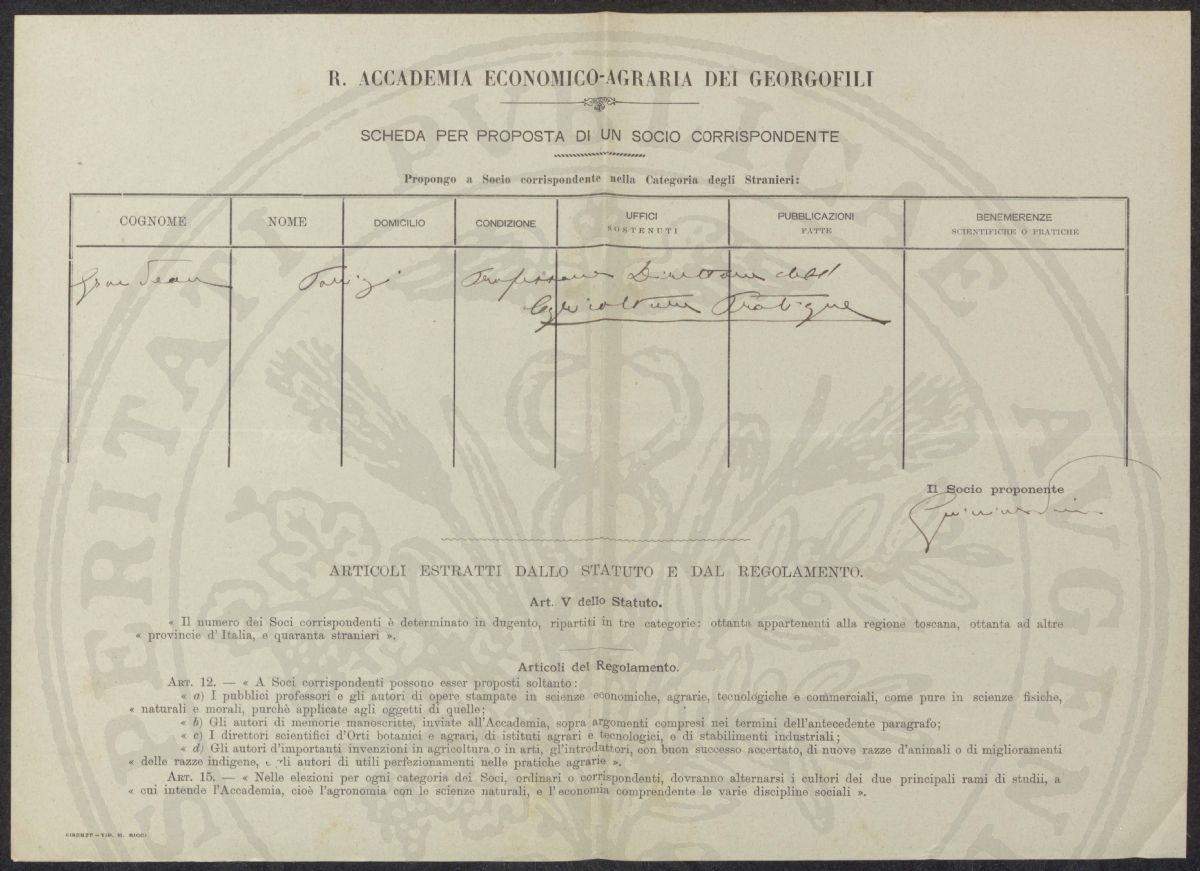 R. ACCADEMIA ECONOMICO-AGRARIA DEI GEORGOFILI
SCHEDA PER PROPOSTA DI UN SOCIO CORRISPONDENTE
Propongo a Socio corrispondente nella Categoria degli Stranieri:
COGNOME NOME DOMICILIO CONDIZIONE UFFICI SOSTENUTI PUBBLICAZIONI FATTE BENEMERENZE SCIENTIFICHE O PRATICHE
Grandeau Parigi Professore Direttore dell
Agriculture Pratique
Il Socio proponente
ARTICOLI ESTRATTI DALLO STATUTO E DAL REGOLAMENTO.
Art. V dello Statuto.
« Il numero dei Soci corrispondenti è determinato in dugento, ripartiti in tre categorie: ottanta appartenenti alla regione toscana, ottanta ad altre
« provincie d'Italia, e quaranta stranieri ».
Articoli del Regolamento.
ART. 12. — « A Soci corrispondenti possono esser proposti soltanto:
« a) I pubblici professori e gli autori di opere stampate in scienze economiche, agrarie, tecnologiche e commerciali, come pure in scienze fisiche,
« naturali e morali, purchè applicate agli oggetti di quelle;
« b) Gli autori di memorie manoscritte, inviate all'Accademia, sopra argomenti compresi nei termini dell'antecedente paragrafo;
« c) I direttori scientifici d'Orti botanici e agrari, di istituti agrari e tecnologici, e di stabilimenti industriali;
« d) Gli autori d'importanti invenzioni in agricoltura o in arti, gl'introduttori, con buon successo accertato, di nuove razze d'animali o di miglioramenti
« delle razze indigene, e gli autori di utili perfezionamenti nelle pratiche agrarie ».
ART. 15. — « Nelle elezioni per ogni categoria dei Soci, ordinari o corrispondenti, dovranno alternarsi i cultori dei due principali rami di studii, a
« cui intende l'Accademia, cioè l'agronomia con le scienze naturali, e l'economia comprendente le varie discipline sociali ».
FIRENZE — TIP. M. RICCI
PROSPERITATI PVBLICAE AVGENDAE